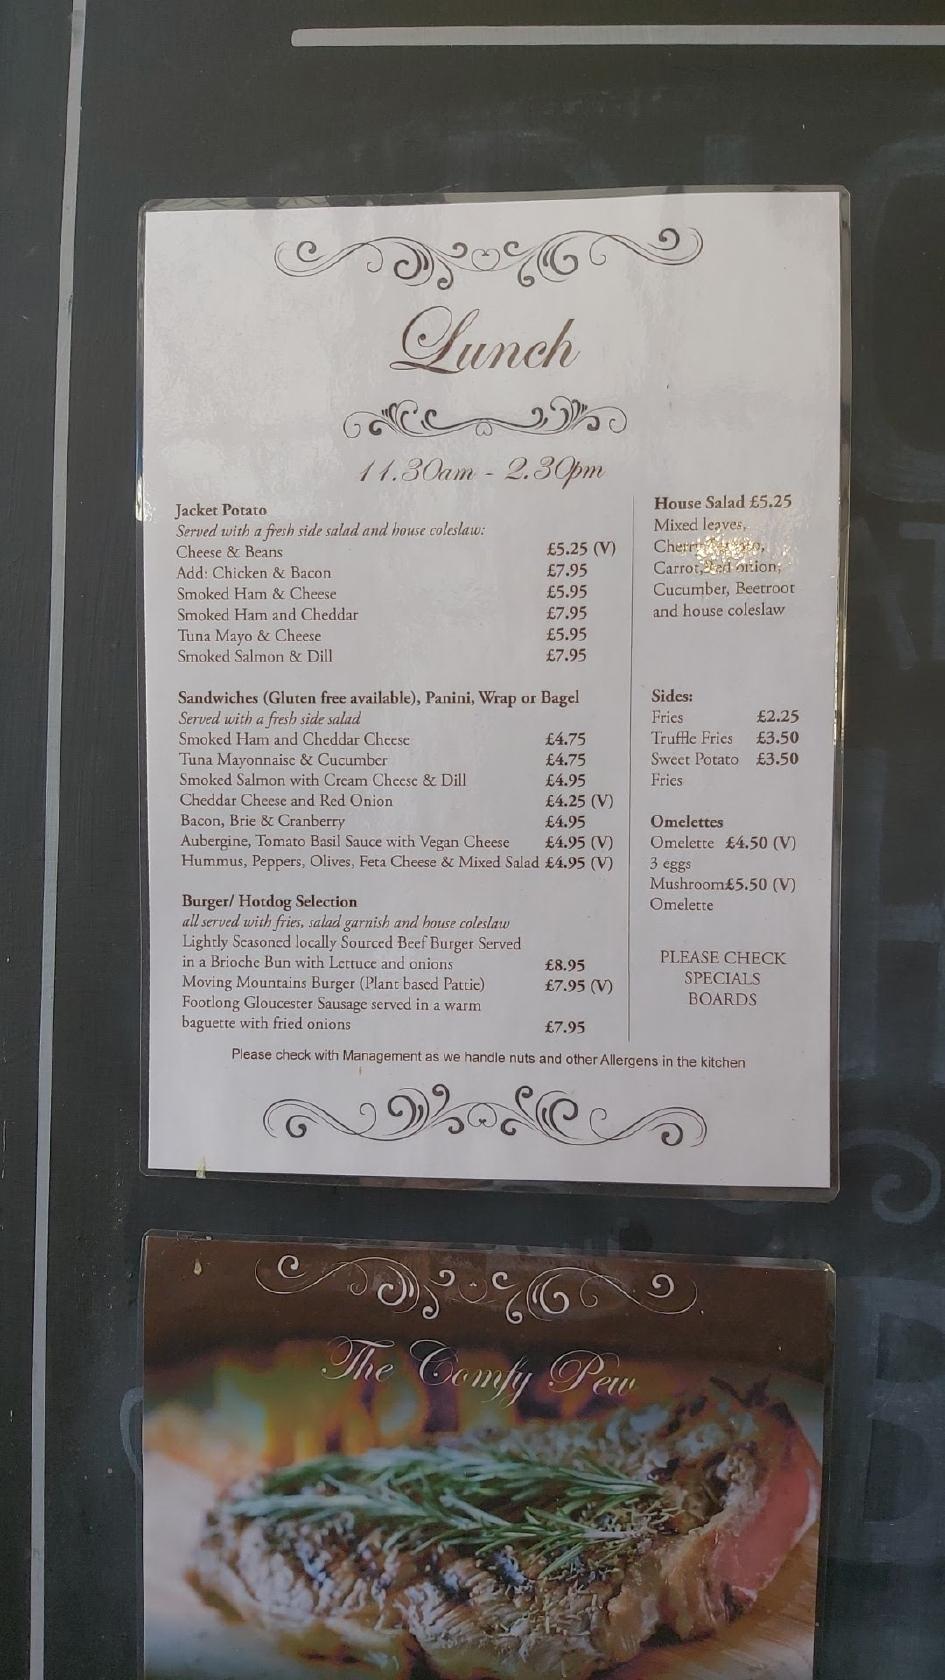 Lunch
11.30am - 2.30pm
Jacket Potato
Served with a fresh side salad and house coleslaw:
Cheese & Beans £5.25 (V)
Add: Chicken & Bacon £7.95
Smoked Ham & Cheese £5.95
Smoked Ham and Cheddar £7.95
Tuna Mayo & Cheese £5.95
Smoked Salmon & Dill £7.95
Sandwiches (Gluten free available), Panini, Wrap or Bagel
Served with a fresh side salad
Smoked Ham and Cheddar Cheese £4.75
Tuna Mayonnaise & Cucumber £4.75
Smoked Salmon with Cream Cheese & Dill £4.95
Cheddar Cheese and Red Onion £4.25 (V)
Bacon, Brie & Cranberry £4.95
Aubergine, Tomato Basil Sauce with Vegan Cheese £4.95 (V)
Hummus, Peppers, Olives, Feta Cheese & Mixed Salad £4.95 (V)
Burger/ Hotdog Selection
all served with fries, salad garnish and house coleslaw
Lightly Seasoned locally Sourced Beef Burger Served
in a Brioche Bun with Lettuce and onions £8.95
Moving Mountains Burger (Plant based Pattie) £7.95 (V)
Footlong Gloucester Sausage served in a warm
baguette with fried onions £7.95
House Salad £5.25
Mixed leaves,
Cherry Tomato,
Carrot, Red onion,
Cucumber, Beetroot
and house coleslaw
Sides:
Fries £2.25
Truffle Fries £3.50
Sweet Potato £3.50
Fries
Omelettes
Omelette £4.50 (V)
3 eggs
Mushroom£5.50 (V)
Omelette
PLEASE CHECK
SPECIALS
BOARDS
Please check with Management as we handle nuts and other Allergens in the kitchen
The Comfy Pew